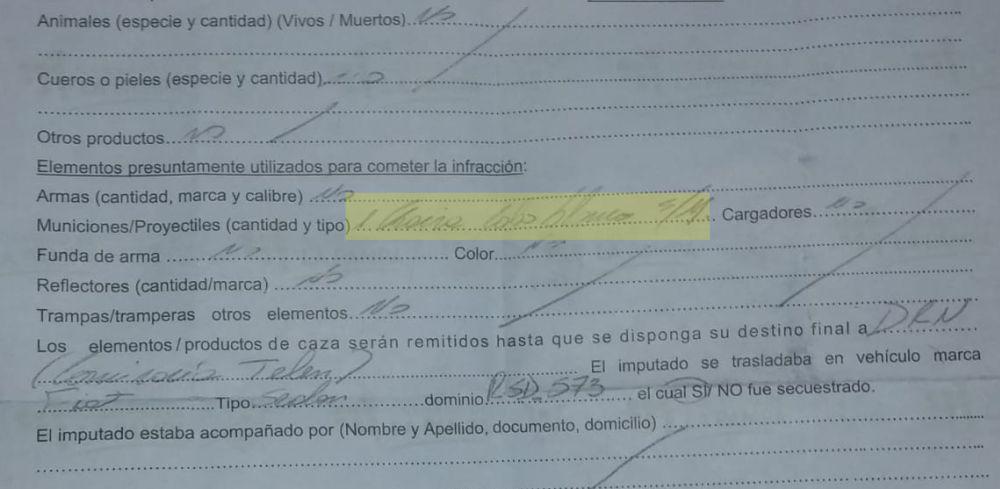 Animales (especie y cantidad) (Vivos / Muertos) No
Cueros o pieles (especie y cantidad) No
Otros productos No
Elementos presuntamente utilizados para cometer la infracción:
Armas (cantidad, marca y calibre) No
Municiones/Proyectiles (cantidad y tipo) 1 cabo blanco s/m Cargadores No
Funda de arma No Color No
Reflectores (cantidad/marca) No
Trampas/tramperas otros elementos No
Los elementos/productos de caza serán remitidos hasta que se disponga su destino final a DRN
(Comisaría Telen) El imputado se trasladaba en vehículo marca
Fiat Tipo Sedan dominio RSD 573 el cual SI/ NO fue secuestrado.
El imputado estaba acompañado por (Nombre y Apellido, documento, domicilio)